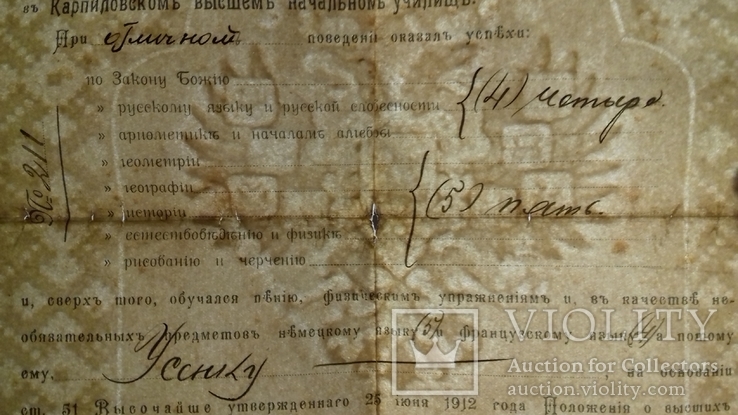 въ Карпиловскомъ высшемъ начальномъ училищѣ.
При отличномъ поведеніи оказалъ успѣхи:
по Закону Божію
» русскому языку и русской словесности {(4) четыре.
» ариѳметикѣ и началамъ алгебры
» геометріи
» географіи
» исторіи {(5) пять.
» естествовѣдѣнію и физикѣ
» рисованію и черченію
№ 311
и, сверхъ того, обучался пѣнію, физическимъ упражненіямъ и, въ качествѣ не-
обязательныхъ предметовъ нѣмецкому языку (5) и французскому языку (4), а потому
ему, Усенку на основаніи
ст. 51 Высочайше утвержденнаго 25 іюня 1912 года Положенія о высшихъ
VIOLITY
Auction for Collectors
auction.violity.com